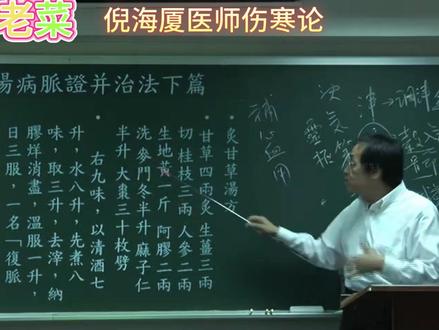 老菜
倪海厦医师伤寒论
陽病脈證并治法下篇
炙甘草湯方
甘草四兩炙 生薑三兩
切桂枝三兩 人參二兩
生地黃一斤 阿膠二兩
洗 麥門冬半升 麻子仁
半升 大棗三十枚劈
右九味，以清酒七
升，水八升，先煮八
味，取三升，去滓，納
膠烊消盡，溫服一升，
日三服，一名「復脈
補心血
津→調津